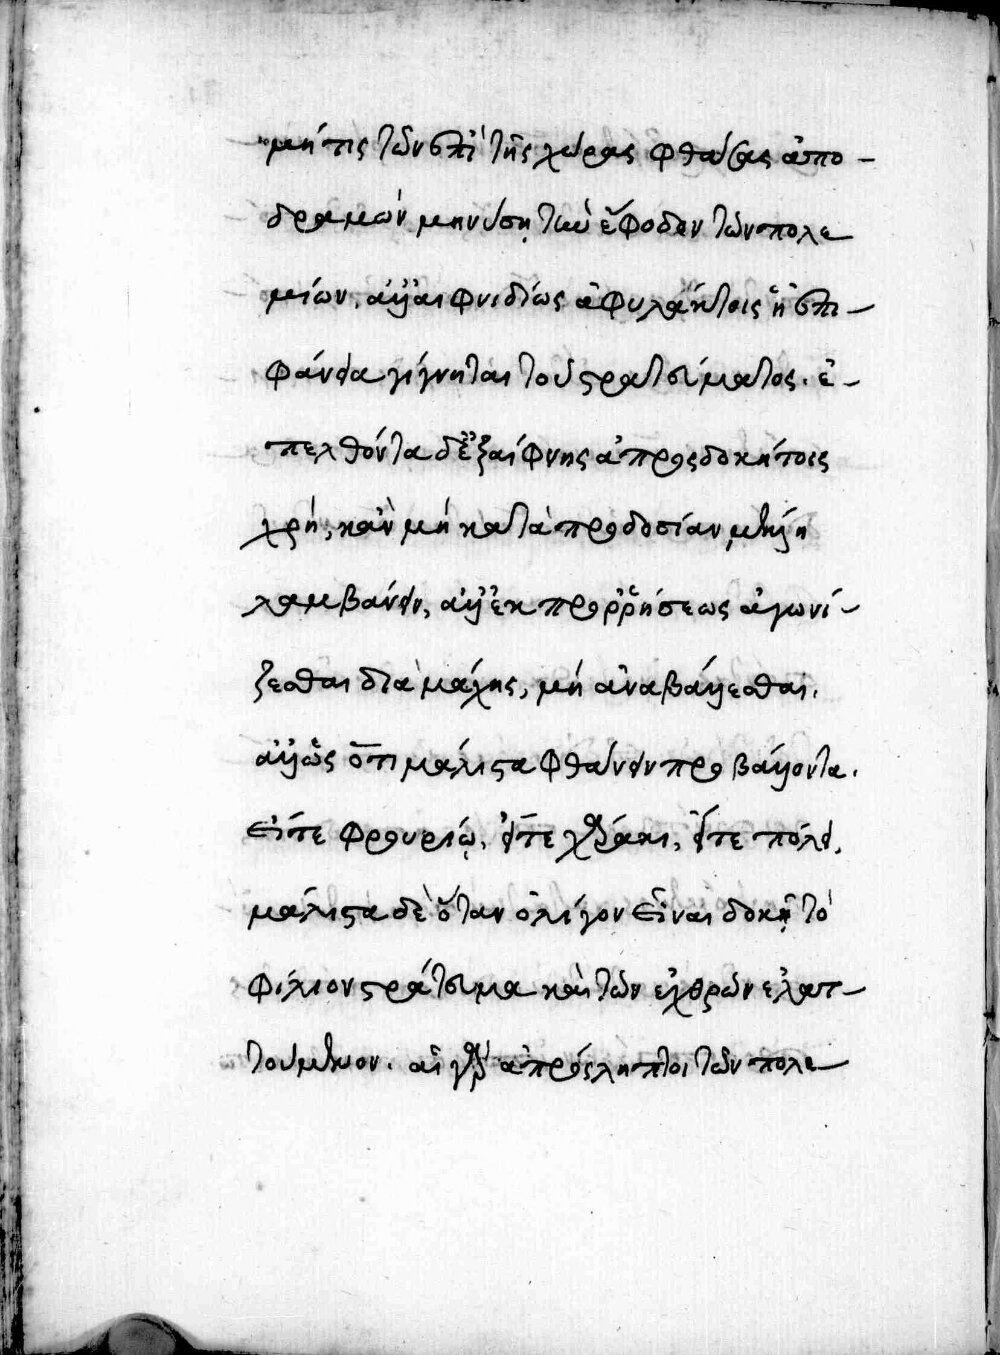 μή τις τῶν ἐπὶ τῆς χώρας φθάσας ἀπο-
δραμὼν μηνύσῃ τὴν ἔφοδον τῶν πολε
μίων. ἀλλ' αἰφνιδίως ἀφυλάκτοις ἡ ἐπι-
φάνεια γίγνηται τοῦ στρατεύματος. ἐ-
πελθόντα δὲ ἐξαίφνης ἀπροσδοκήτοις
χρή, κἂν μὴ κατὰ προδοσίαν μέλλῃ
λαμβάνειν, ἀλλ' ἐκ προῤῥήσεως ἀγωνί-
ζεσθαι διὰ μάχης, μὴ ἀναβάλλεσθαι.
ἀλλ' ὡς ὅτι μάλιστα φθάνειν προβάλλοντα.
εἴτε φρουρίῳ, εἴτε χάρακι, εἴτε πόλει.
μάλιστα δὲ ὅταν ὀλίγον εἶναι δοκῇ τὸ
φίλιον στράτευμα καὶ τῶν ἐχθρῶν ἐλατ-
τούμενον. αἱ γὰρ ἀπρόσληπτοι τῶν πολε